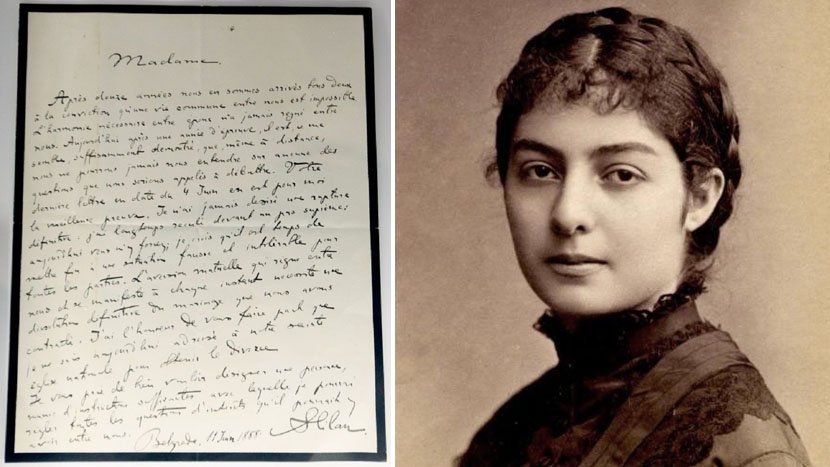 Madame.
Après douze années nous en sommes arrivés tous deux
à la conviction qu'une vie commune entre nous est impossible
L'harmonie nécessaire entre époux n'a jamais régné entre
nous. Aujourd'hui après une année d'épreuve, il est, ce me
semble, suffisamment démontré, que, même à distance,
nous ne pourrons jamais nous entendre sur aucune des
questions que nous serions appelés à débattre. Votre
dernière lettre en date du 4 Juin en est pour moi
la meilleure preuve. Je n'ai jamais désiré une rupture
définitive; j'ai longtemps reculé devant un pas suprême:
aujourd'hui vous m'y forcez; je crois qu'il est temps de
mettre fin à une situation fausse et intolérable pour
toutes les parties. L'aversion mutuelle qui règne entre
nous et se manifeste à chaque instant nécessite une
dissolution définitive du mariage que nous avons
contracté. J'ai l'honneur de vous faire part que
je me suis aujourd'hui adressé à notre sainte
église nationale pour obtenir le divorce
Je vous prie de bien vouloir désigner une personne,
munie d'instructions suffisantes avec laquelle je pourrai
régler toutes les questions d'intérêts qu'il pourrait y
avoir entre nous. Belgrade, 11 Juin 1888. Milan